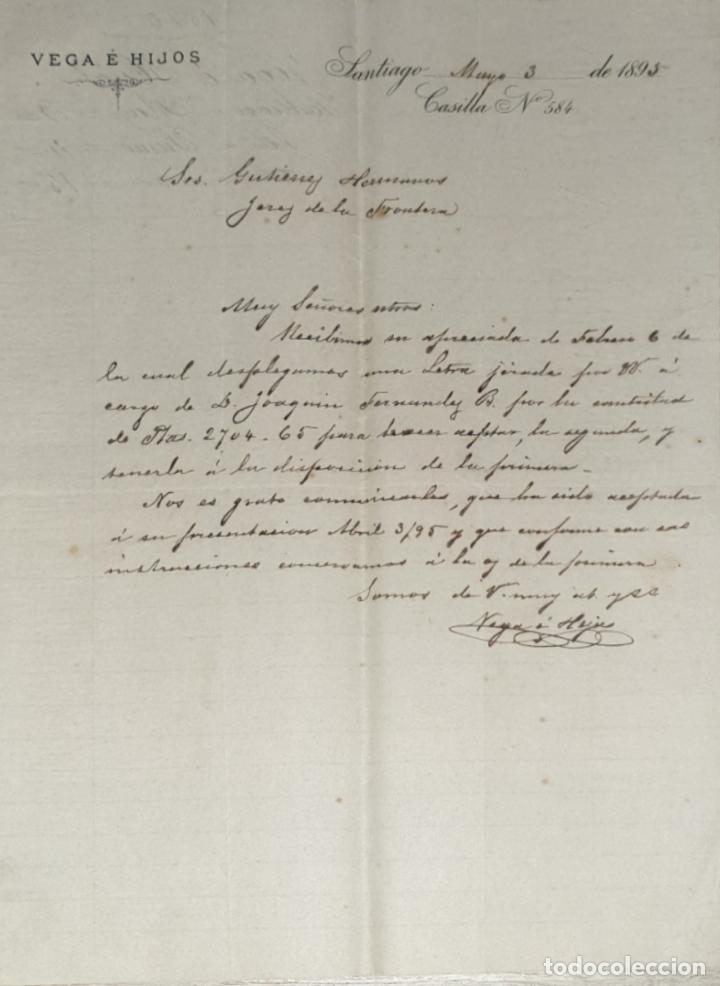 VEGA É HIJOS
Santiago Mayo 3 de 1895
Casilla Nº 584
Sres. Gutierrez Hermanos
Jerez de la Frontera
Muy Señores ntros:
Recibimos su apreciada de Febrero 6 de
la cual desplegamos una Letra jirada por W. á
cargo de D. Joaquin Fernandez B. por la cantidad
de Ptas. 2704-65 para hacer aceptar, la segunda, y
tenerla á la disposicion de la primera.
Nos es grato comunicarles, que ha sido aceptada
á su presentacion Abril 3/95 y que conforme con sus
instrucciones conservamos á la de la primera
Somos de V. muy at. y SS
Vega é Hijos
todocoleccion